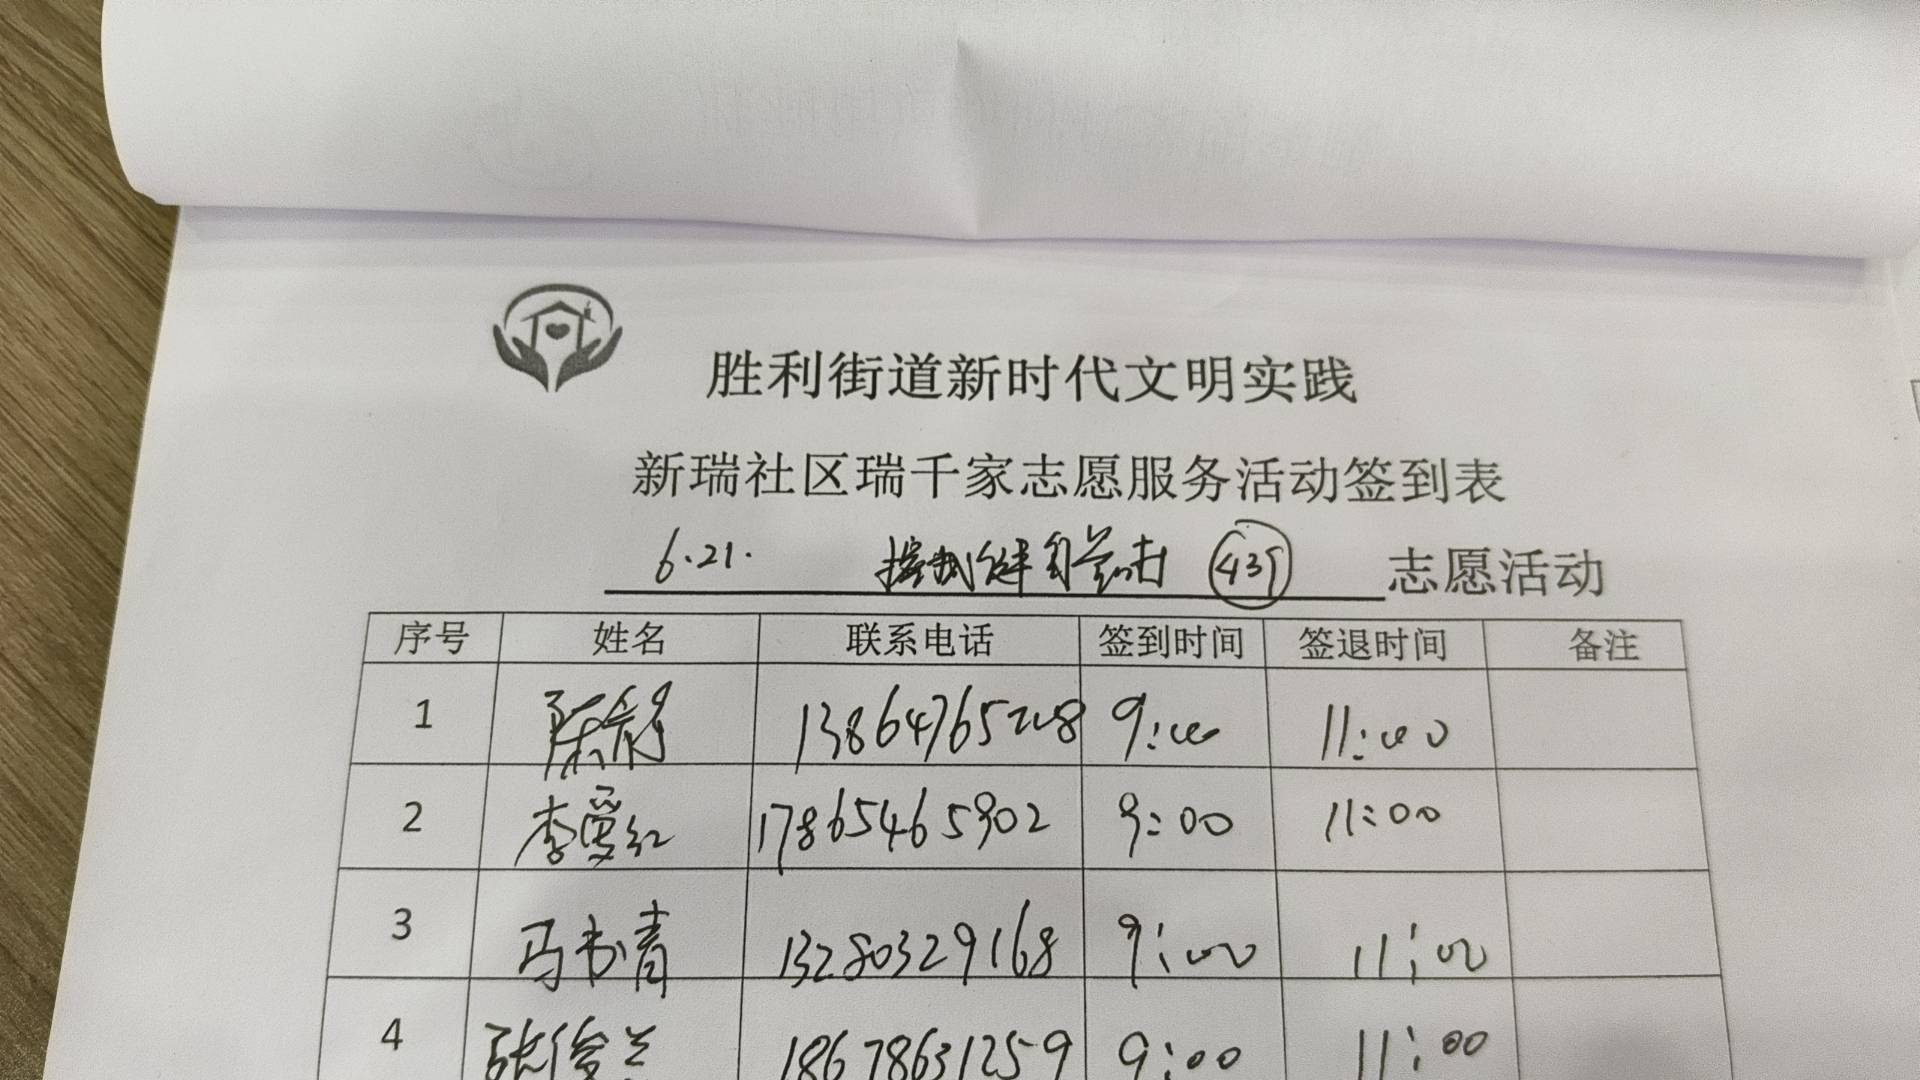 胜利街道新时代文明实践
新瑞社区瑞千家志愿服务活动签到表
6.21. 439 志愿活动
序号 姓名 联系电话 签到时间 签退时间 备注
1 陈 9:00 11:00
2 李爱红 17865465902 9:00 11:00
3 马书青 13280329168 9:00 11:00
4 张俊兰 18678631259 9:00 11:00